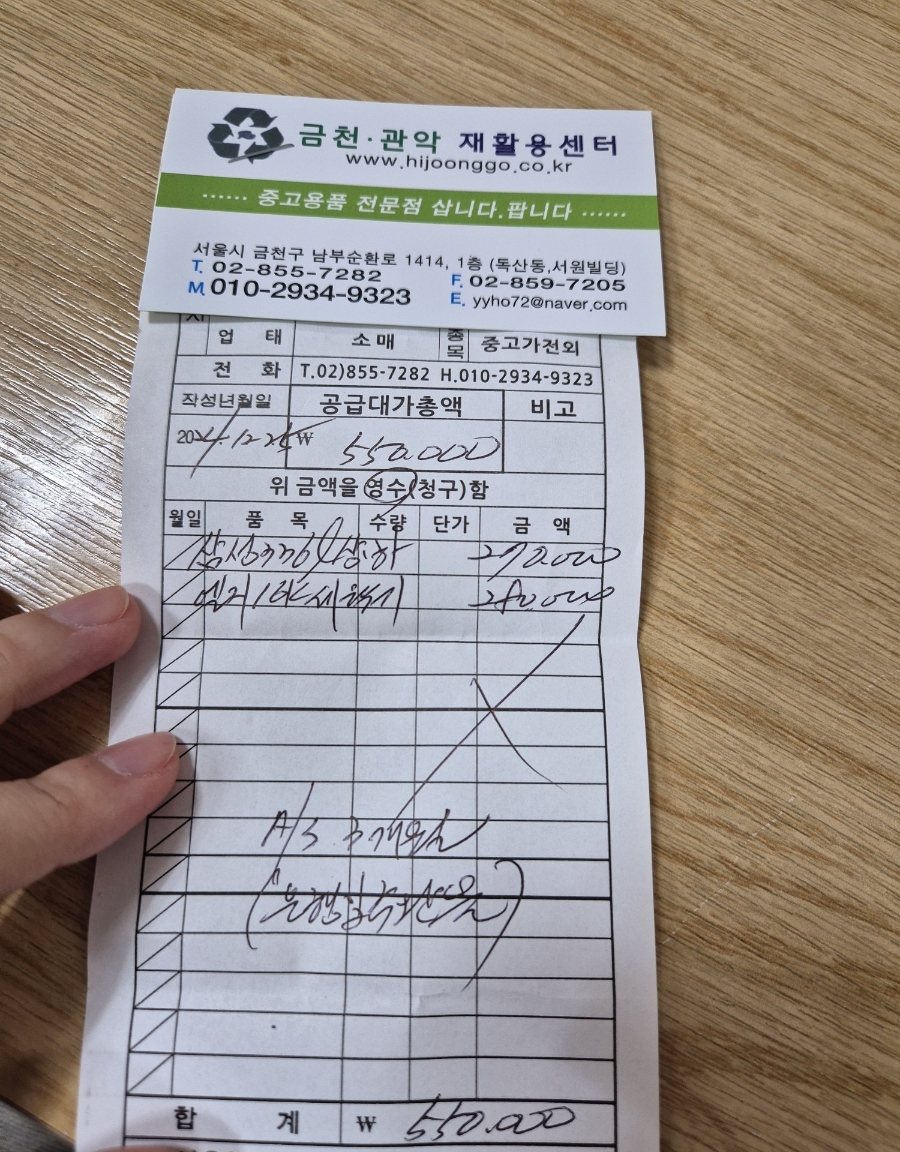 금천·관악 재활용센터
www.hijoonggo.co.kr
...... 중고용품 전문점 삽니다.팝니다 ......
서울시 금천구 남부순환로 1414, 1층 (독산동,서원빌딩)
T. 02-855-7282 F. 02-859-7205
M. 010-2934-9323 E. yyho72@naver.com
업 태 소매 종목 중고가전외
전 화 T.02)855-7282 H.010-2934-9323
작성년월일 공급대가총액 비고
₩ 550.000
위 금액을 영수(청구)함
월일 품 목 수량 단가 금 액
삼성 270.000
세탁기 280.000
A/S 3개월
합 계 ₩ 550.000